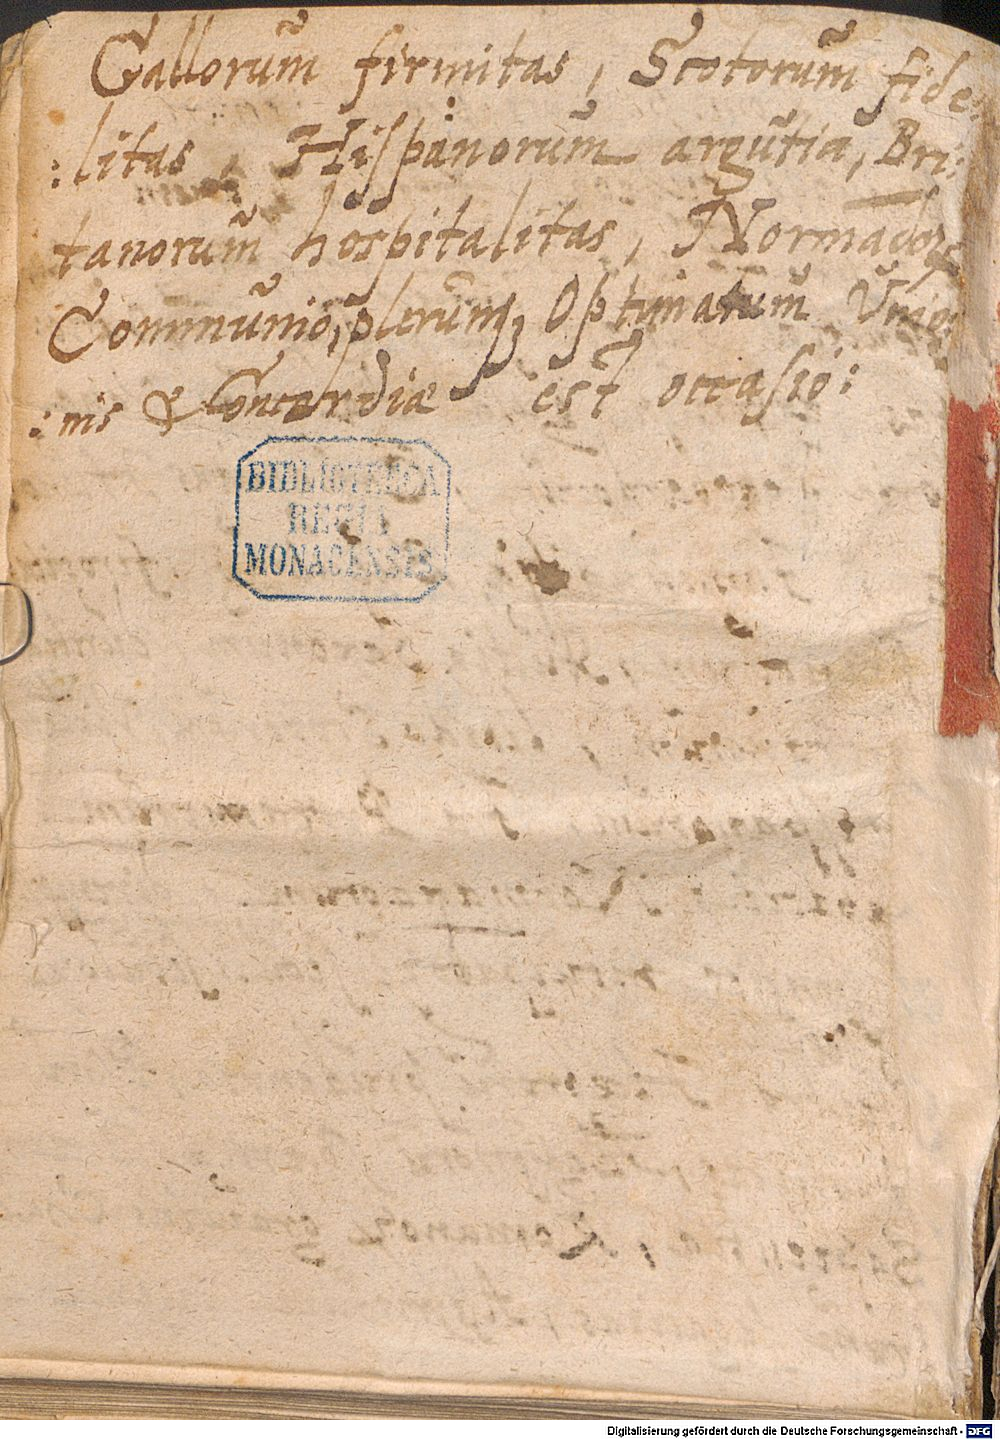 Gallorum̃ firmitas, Scotorum̃ fide:
:litas, Hispanorum̃ argutia, Bri:
tanorum̃ hospitalitas, Normadoꝝ
Communio, plerũmqꝫ Optimatum̃ Vnio:
:nis & Concordiæ est occasio:
BIBLIOTHECA
REGIA
MONACENSIS
Digitalisierung gefördert durch die Deutsche Forschungsgemeinschaft - DFG